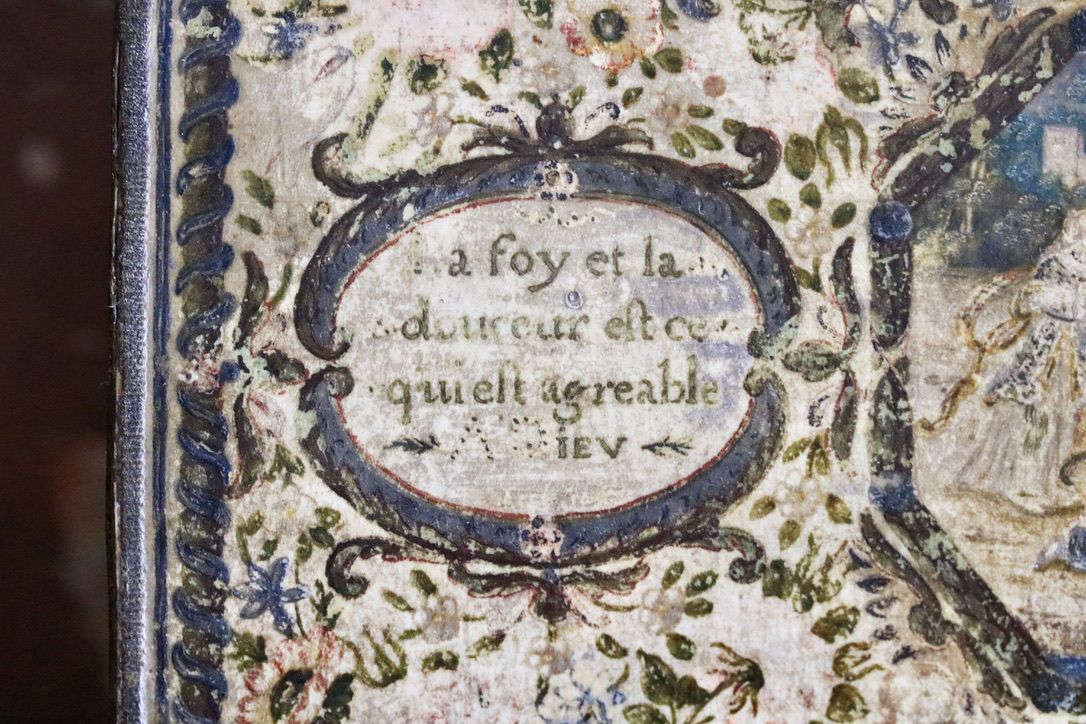 la foy et la
douceur est ce
qui est agreable
A DIEV